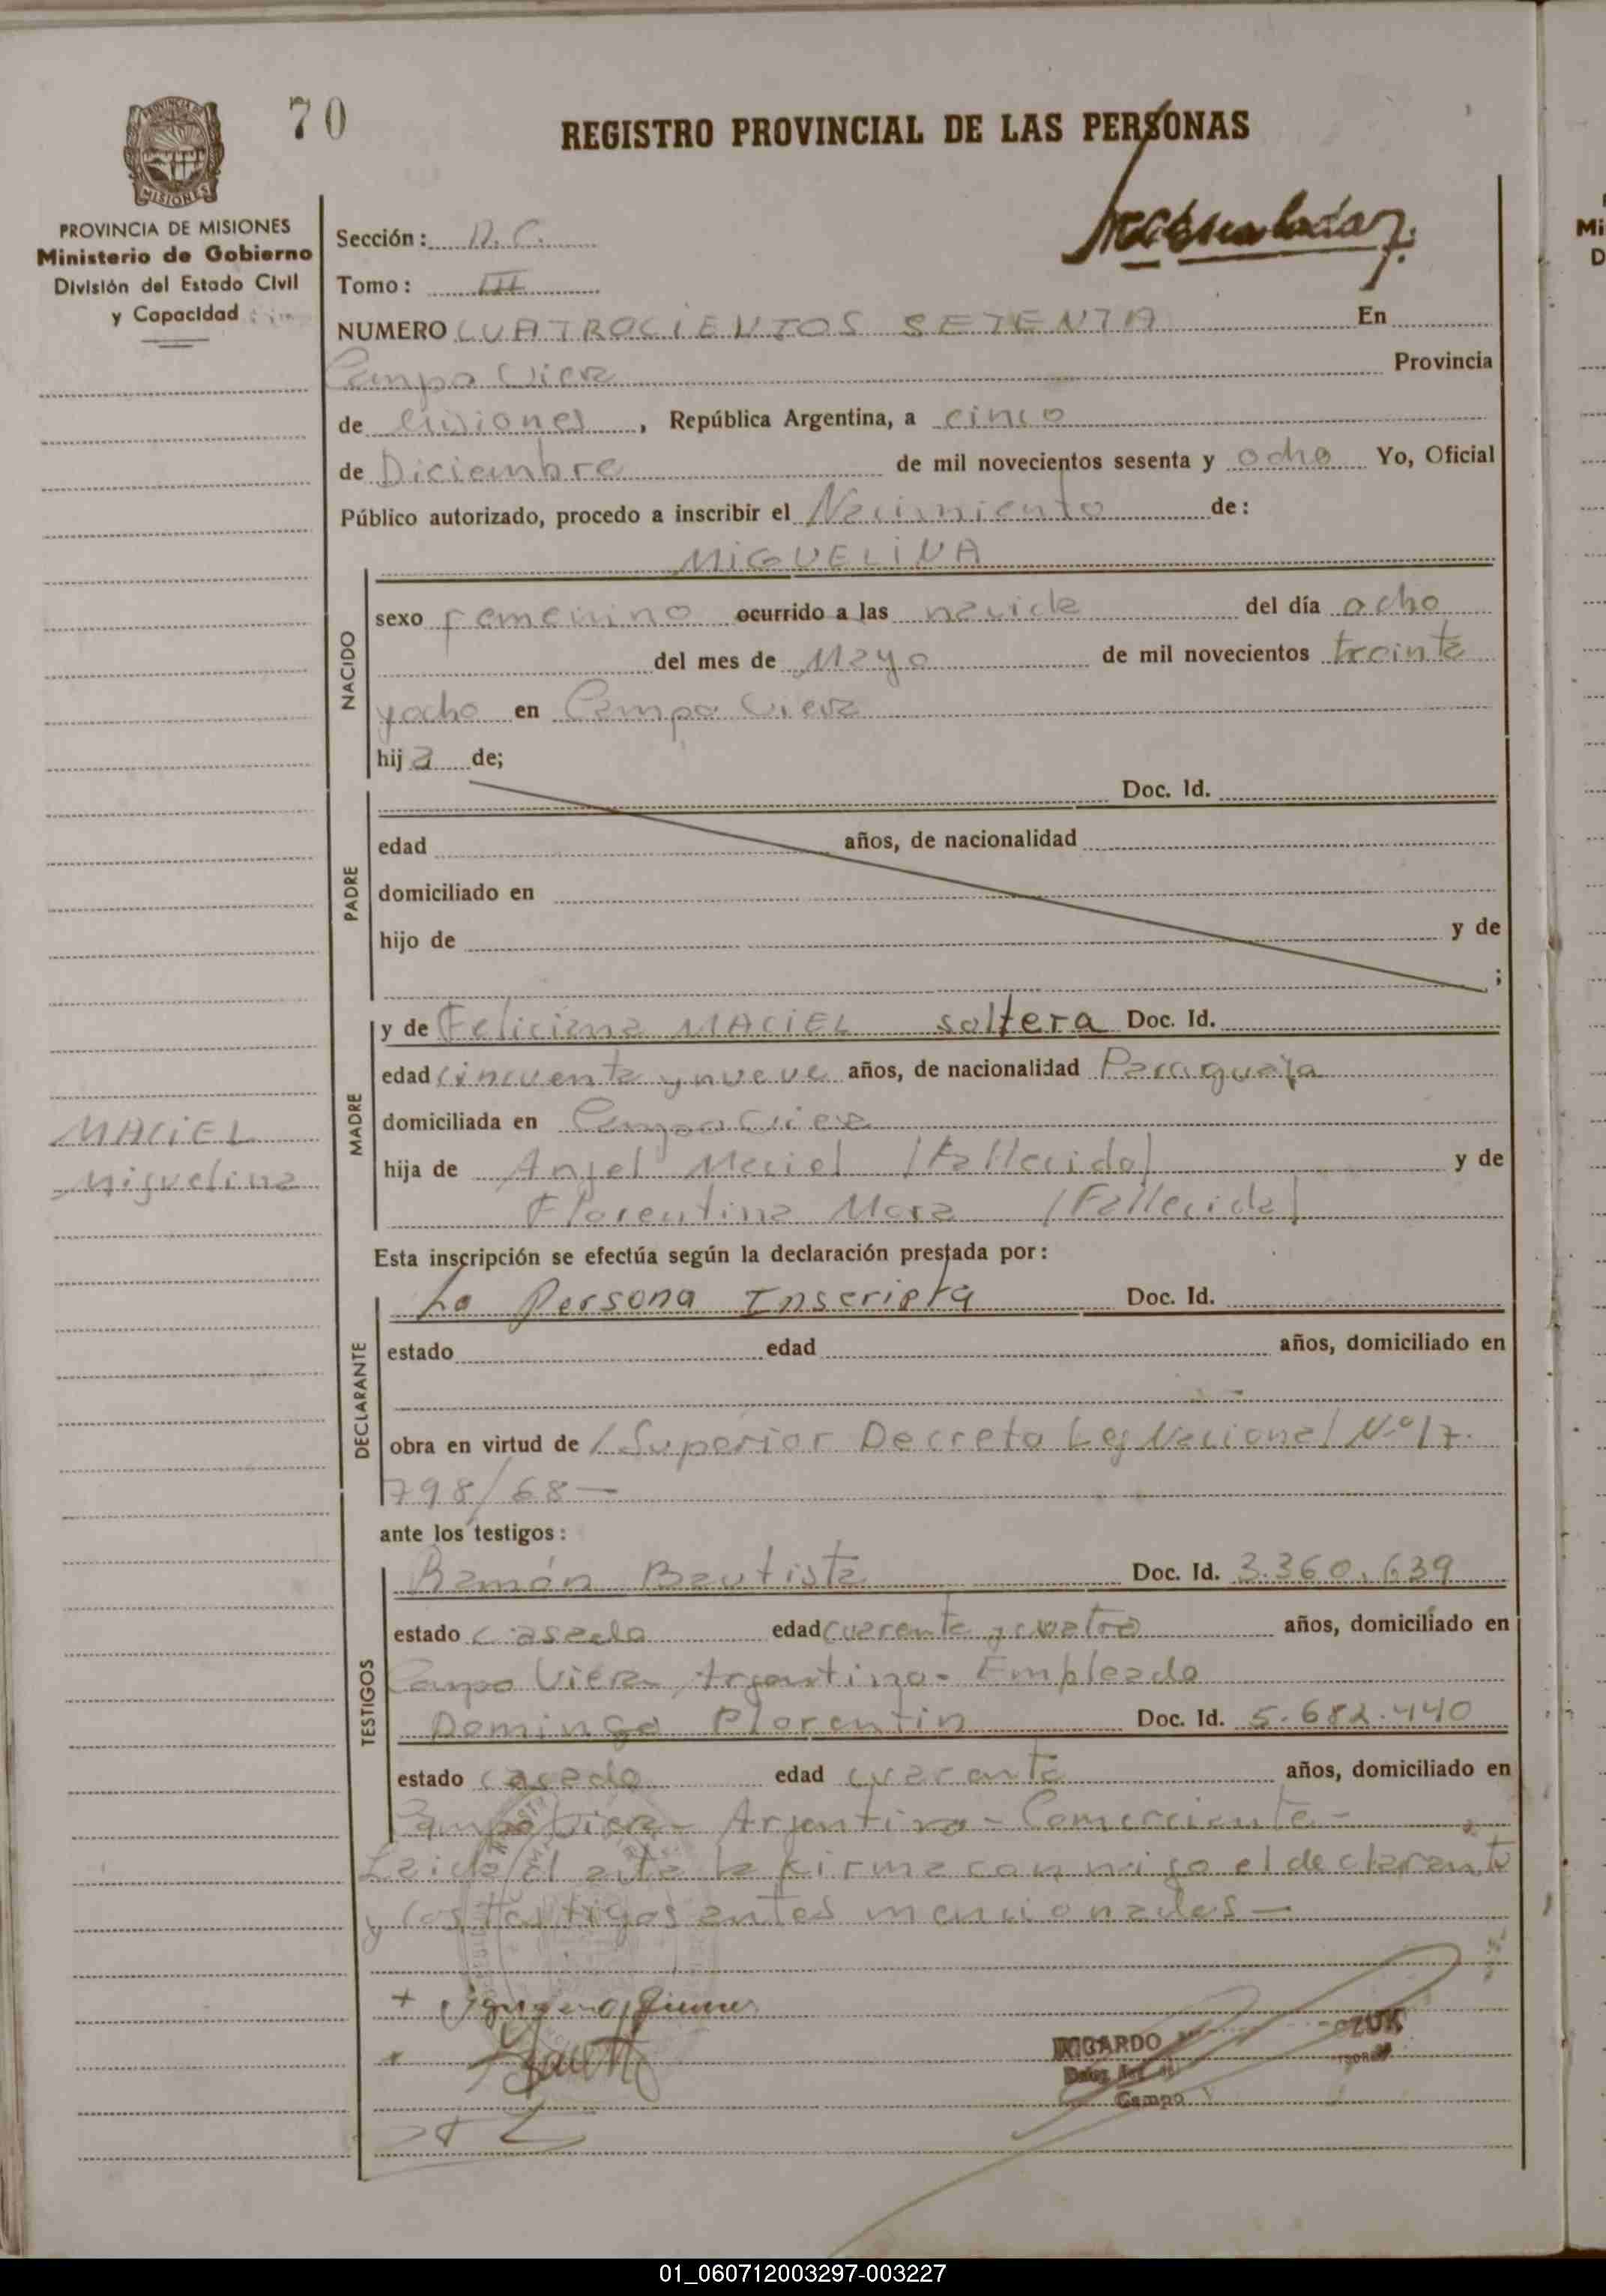 70
REGISTRO PROVINCIAL DE LAS PERSONAS
PROVINCIA DE MISIONES
MISIONES
PROVINCIA DE MISIONES
Ministerio de Gobierno
División del Estado Civil
y Capacidad
Sección:
Tomo: III
NUMERO CUATROCIENTOS SETENTA En
Campo Viera Provincia
de Misiones, República Argentina, a cinco
de Diciembre de mil novecientos sesenta y ocho Yo, Oficial
Público autorizado, procedo a inscribir el Nacimiento de:
MIGUELINA
NACIDO
sexo femenino ocurrido a las nacida del día ocho
del mes de Mayo de mil novecientos treinta
y ocho en Campo Viera
hija de;
PADRE
Doc. Id.
edad años, de nacionalidad
domiciliado en
hijo de y de
;
MADRE
y de Feliciana MACIEL soltera Doc. Id.
edad cincuenta y nueve años, de nacionalidad Paraguaya
domiciliada en Campo Viera
MACIEL
Miguelina
hija de Anjel Maciel (Fallecido) y de
Florentina Mora (Fallecida)
Esta inscripción se efectúa según la declaración prestada por:
DECLARANTE
La Persona Inscripta Doc. Id.
estado edad años, domiciliado en
obra en virtud de /Superior Decreto Ley Nacional N.º 17.
798/68—
ante los testigos:
TESTIGOS
Ramón Bautista Doc. Id. 3.360.639
estado casado edad cuarenta y cuatro años, domiciliado en
Campo Viera Argentino- Empleado
Domingo Florentin Doc. Id. 5.682.440
estado casado edad cuarenta años, domiciliado en
Campo Viera- Arjentino- Comerciante-
Leida el acta la firma con migo el declarante
y los testigos antes mencionados—
RICARDO
Campo V
01_060712003297-003227